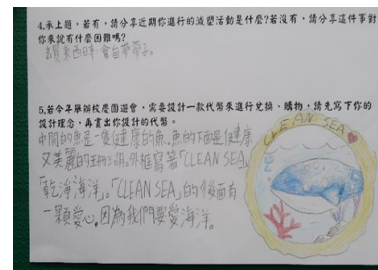 4.承上題,若有,請分享近期你進行的減塑活動是什麼?若沒有,請分享這件事對
你來說有什麼困難嗎?
去買東西時,會自帶袋子。
5.若今年舉辦校慶園遊會,需要設計一款代幣來進行兌換、購物,請先寫下你的
設計理念,再畫出你設計的代幣。
中間的魚是一隻健康的魚,魚的下面是健康
又美麗的珊瑚,外框寫著「CLEAN SEA」
「乾淨海洋」。「CLEAN SEA」的後面有
一顆愛心,因為我們要愛海洋。
CLEAN SEA